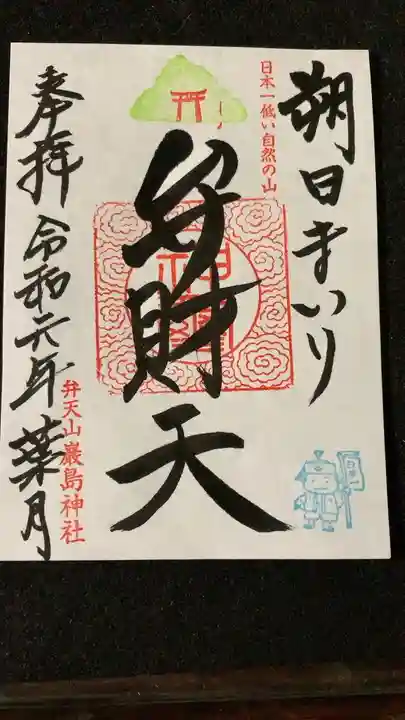 朔日まいり
日本一低い自然の山
弁財天
奉拝 令和元年 葉月
弁天山 厳島神社
日本一